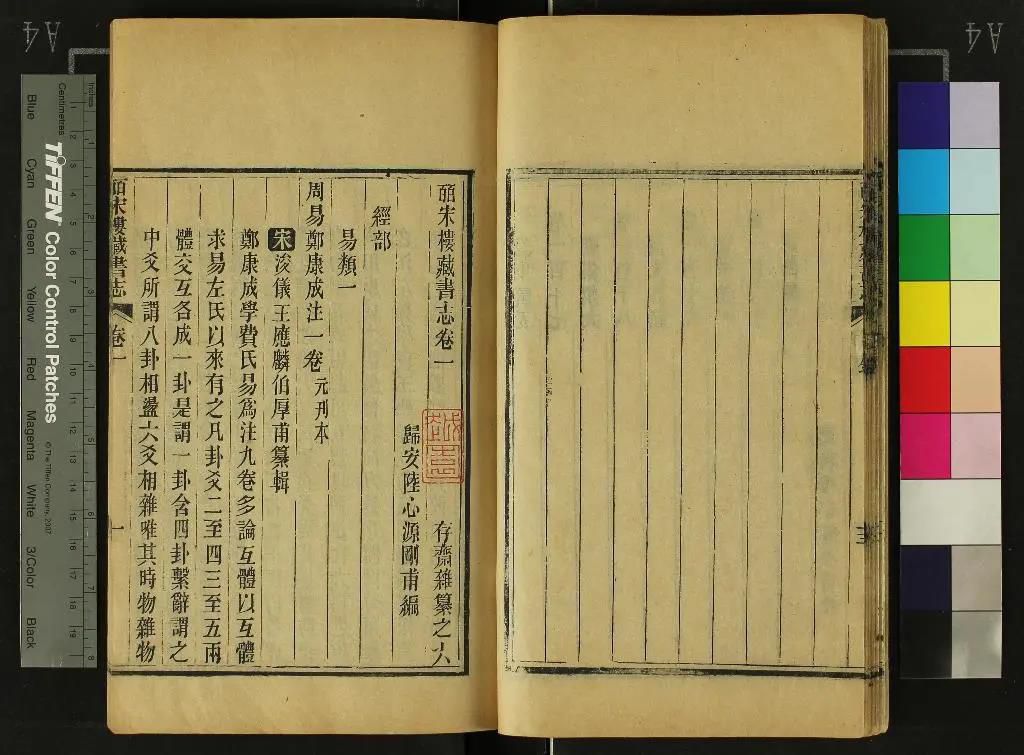 皕宋樓藏書志卷一
存齋雜纂之六
歸安陸心源剛甫編
經部
易類一
周易鄭康成注一卷 元刊本
宋 浚儀王應麟伯厚甫纂輯
鄭康成學費氏易爲注九卷多論互體以互體
求易左氏以來有之凡卦爻二至四三至五兩
體交互各成一卦是謂一卦含四卦繫辭謂之
中爻所謂八卦相盪六爻相雜唯其時物雜物
皕宋樓藏書志 卷一
一
A4
A4
Inches
Centimetres
TIFFEN Color Control Patches
© The Tiffen Company, 2007
Blue
Cyan
Green
Yellow
Red
Magenta
White
3/Color
Black